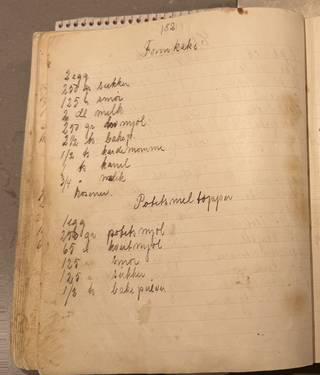 152
Formkake
2 egg
250 gr sukker
125 " smør
2 dl melk
250 gr mjøl
2 1/2 ts bakep.
1/2 ts kardemomme
" ts kanel
3/4 "
Rosiner
Potetmel topper
1 egg
250 gr potetmjøl
65 " hvetmjøl
125 " smør
125 " sukker
1/2 ts bakepulver